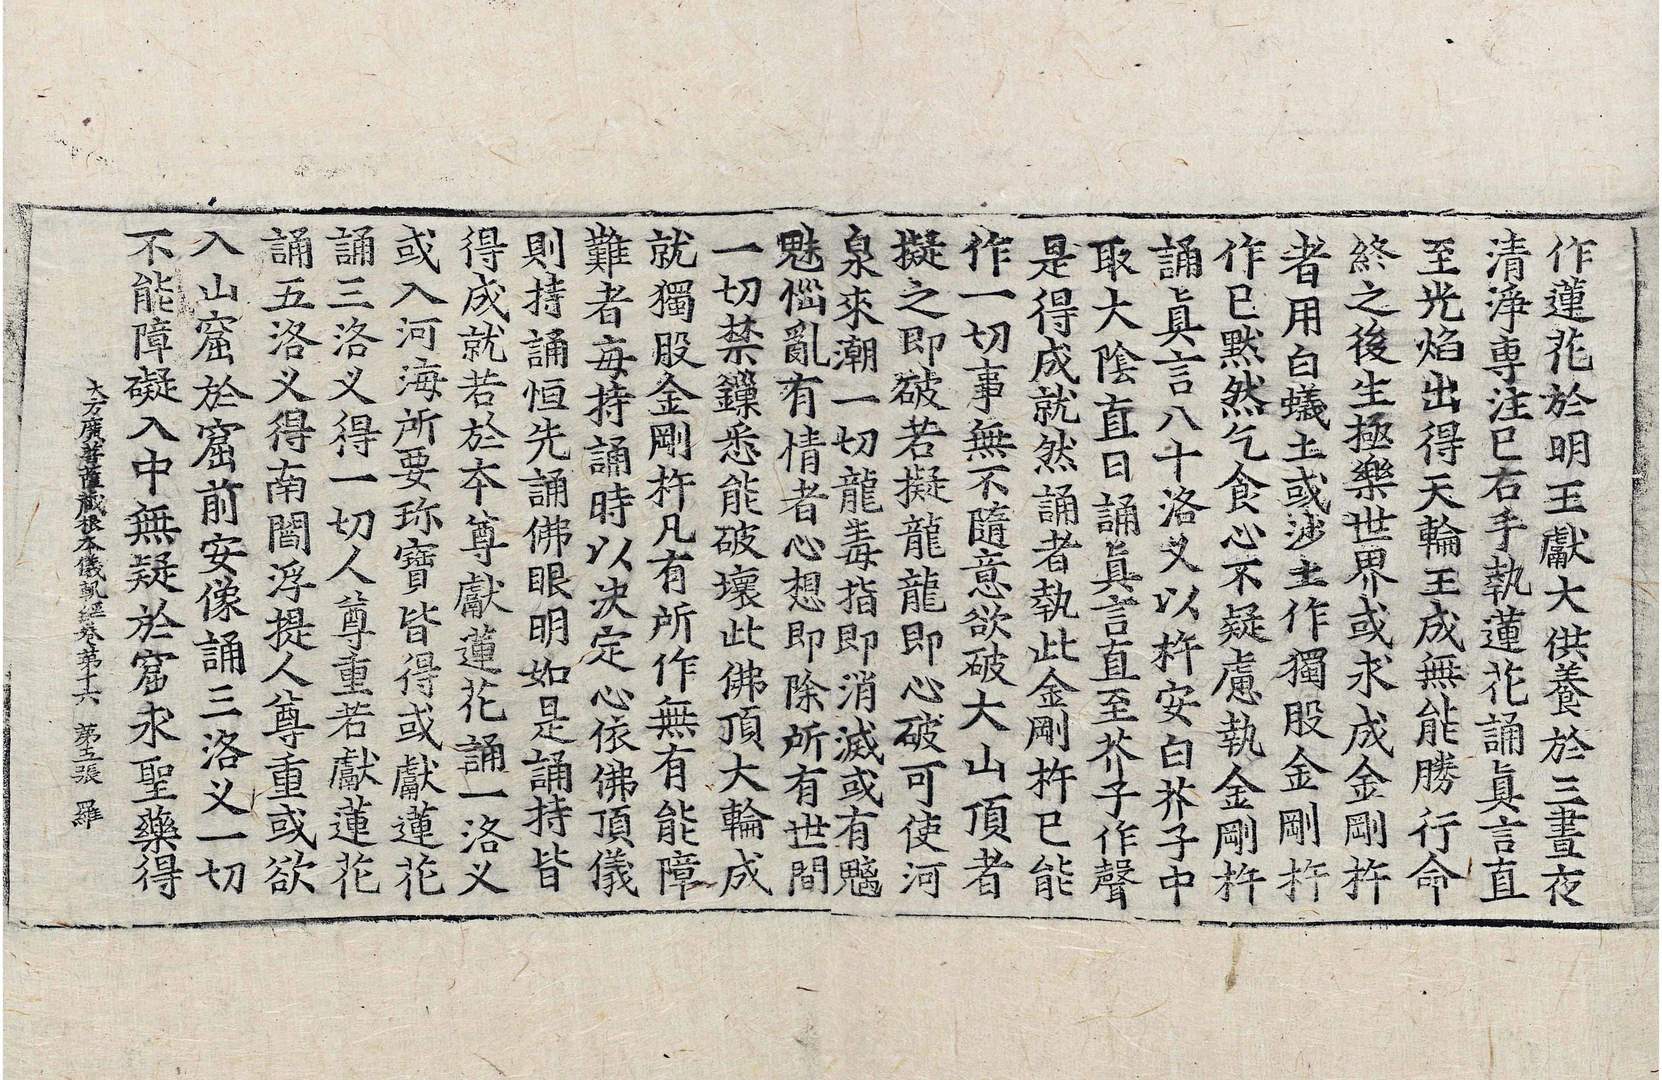 作蓮花於明王獻大供養於三晝夜
清淨專注已右手執蓮花誦眞言直
至光焰出得天輪王成無能勝行命
終之後生極樂世界或求成金剛杵
者用白蟻土或涉土作獨股金剛杵
作已黙然乞食心不疑慮執金剛杵
誦眞言八十洛叉以杵安白芥子中
取大陰直日誦眞言直至芥子作聲
是得成就然誦者執此金剛杵已能
作一切事無不隨意欲破大山頂者
擬之即破若擬龍龍即心破可使河
泉來潮一切龍毒指即消滅或有魑
魅惱亂有情者心想即除所有世間
一切禁鏁悉能破壞此佛頂大輪成
就獨股金剛杵凡有所作無有能障
難者每持誦時以決定心依佛頂儀
則持誦恒先誦佛眼明如是誦持皆
得成就若於本尊獻蓮花誦一洛叉
或入河海所要珎寶皆得或獻蓮花
誦三洛叉得一切人尊重若獻蓮花
誦五洛叉得南閻浮提人尊重或欲
入山窟於窟前安像誦三洛叉一切
不能障礙入中無疑於窟求聖藥得
大方廣菩薩藏根本儀軌經卷第十六 第五張 羅